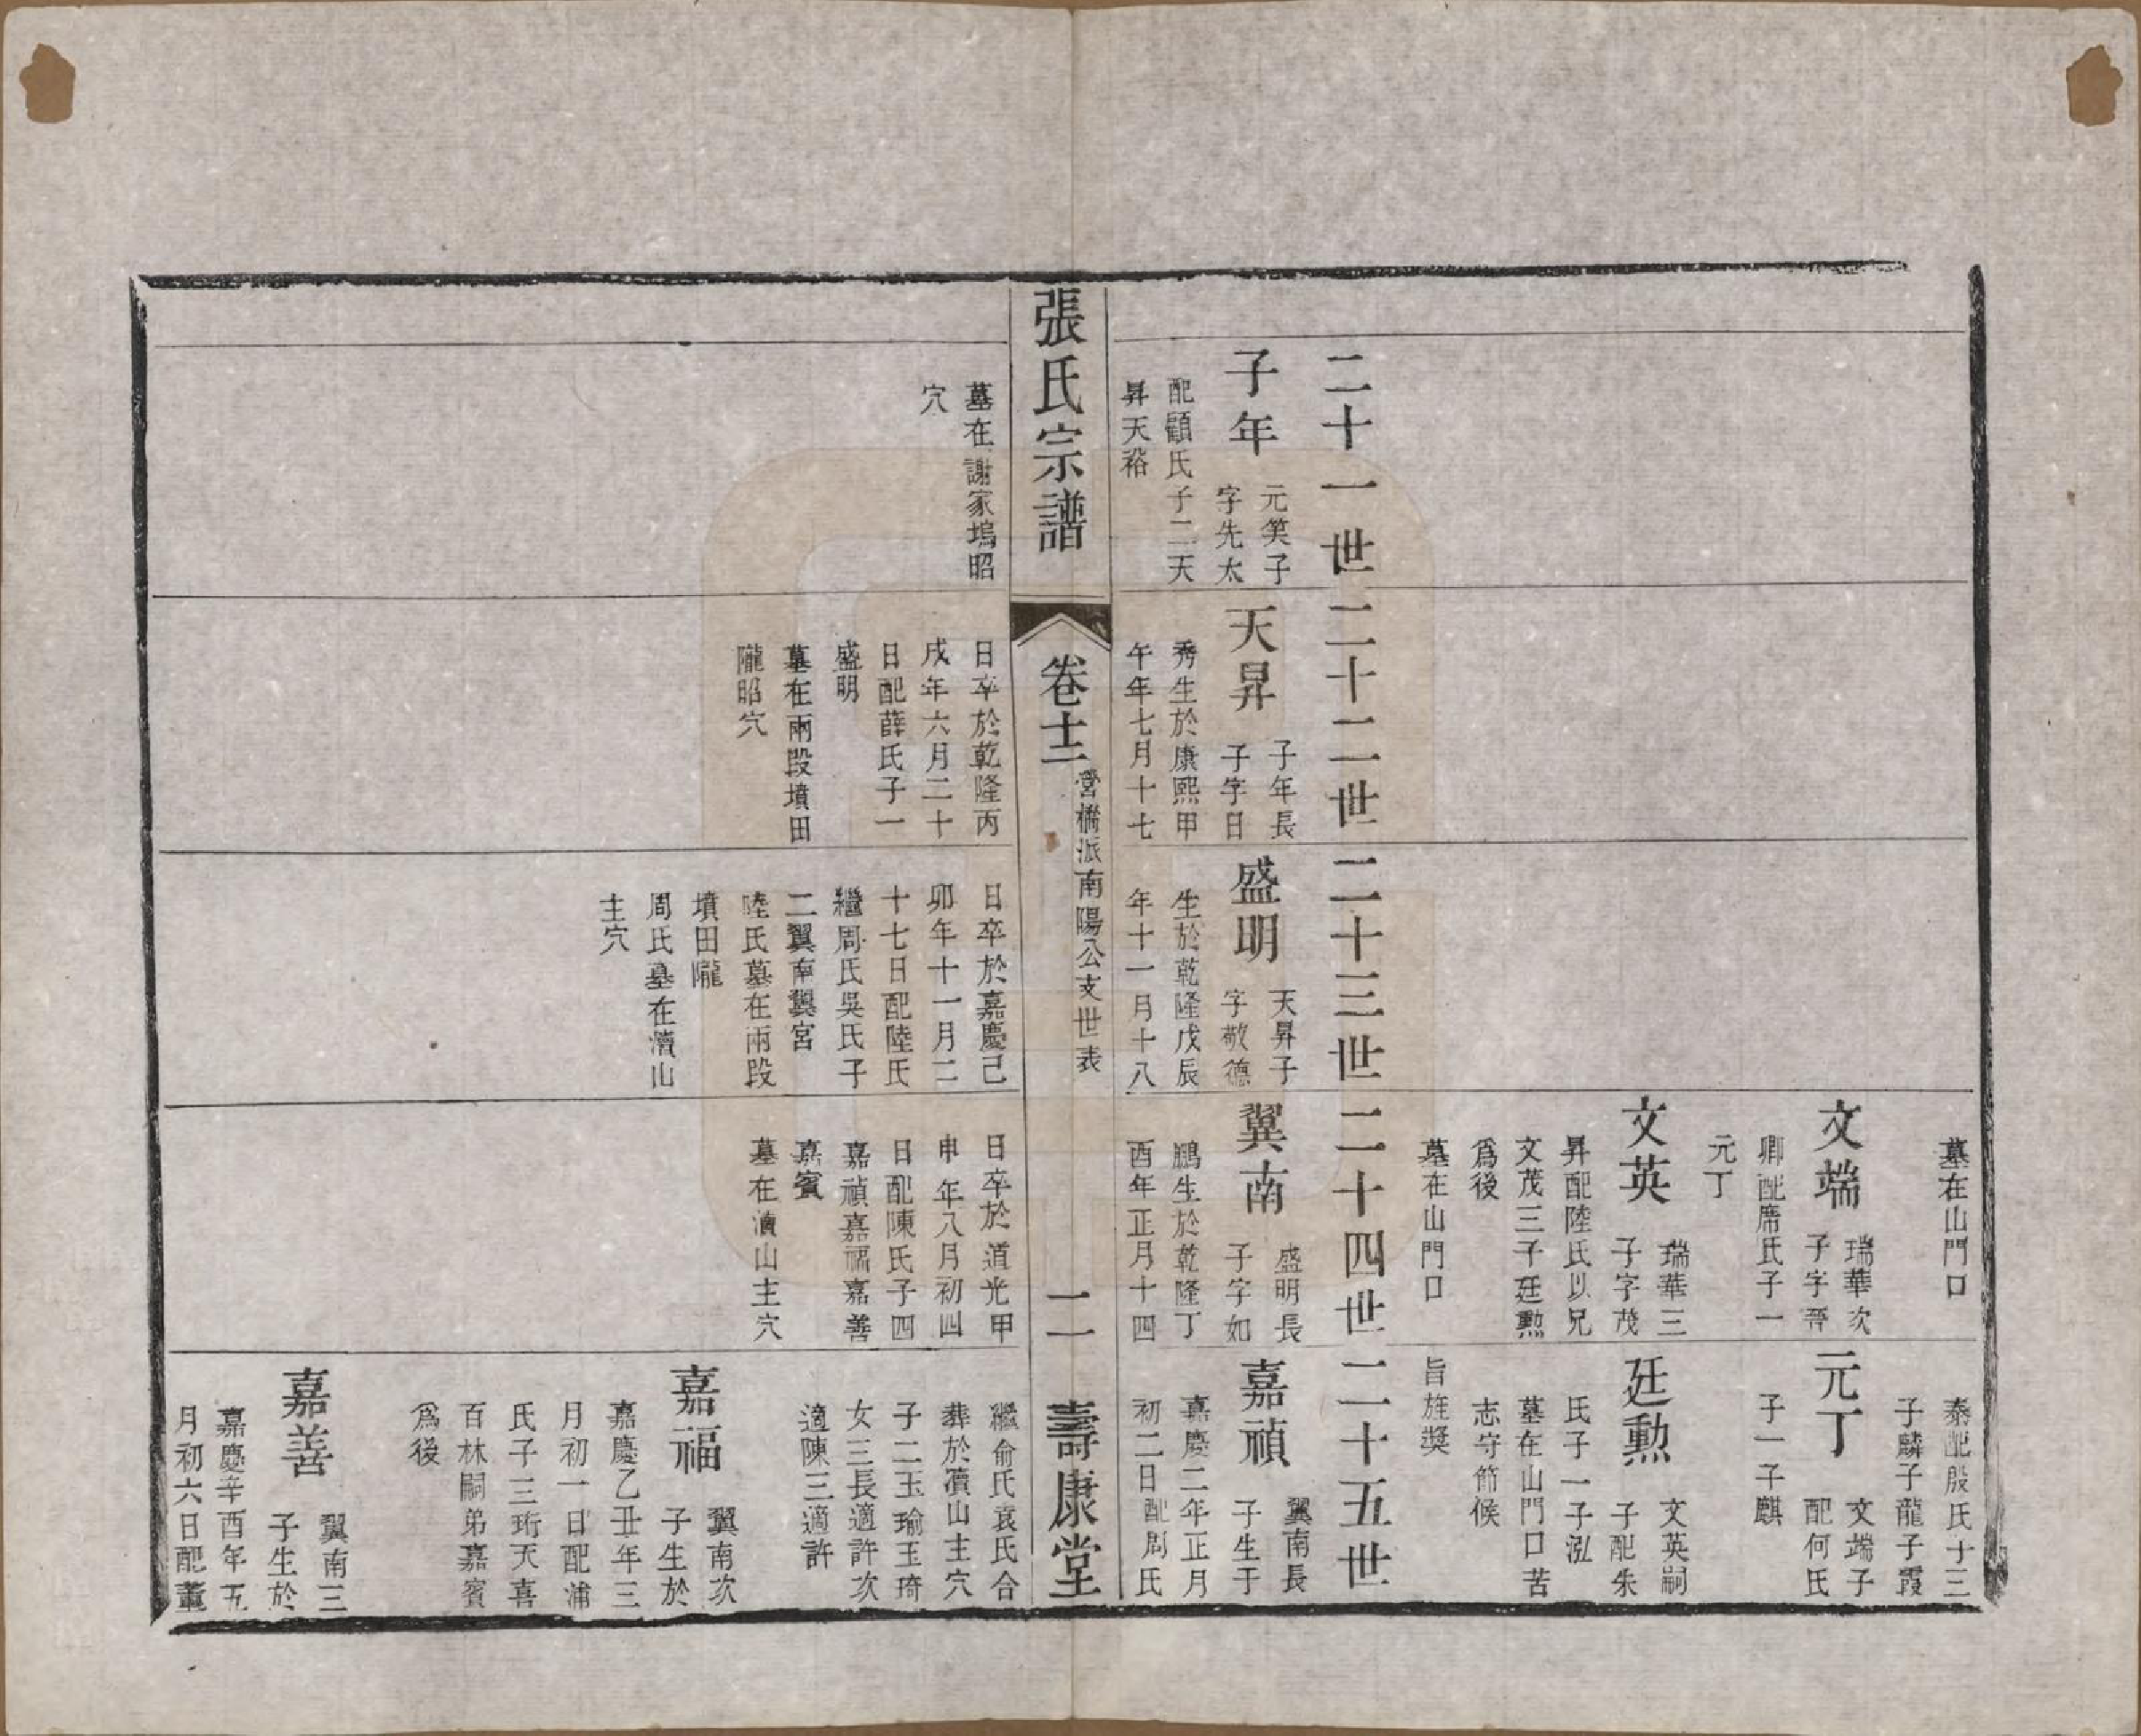 墓在山門口
文端
瑞華次
子字晉
卿配席氏子一
元丁
文英
瑞華三
子字茂
昇配陸氏以兄
文茂三子廷勲
爲後
墓在山門口
泰配殷氏十三
子麟子龍子霞
元丁
文端子
配何氏
子一子麒
廷勲
文英嗣
子配朱
氏子一子泓
墓在山門口苦
志守節候
旨旌奬
二十一世
二十二世
二十三世
二十四世
二十五世
子年
元笑子
字先太
配顧氏子二天
昇天裕
天昇
子年長
子字日
秀生於康熙甲
午年七月十七
盛明
天昇子
字敬德
生於乾隆戊辰
年十一月十八
翼南
盛明長
子字如
鵬生於乾隆丁
酉年正月十四
嘉禎
翼南長
子生于
嘉慶二年正月
初二日配周氏
張氏宗譜
卷十二
營橋派南陽公支世表
二
壽康堂
墓在謝家塢昭
穴
日卒於乾隆丙
戌年六月二十
日配薛氏子一
盛明
墓在兩段墳田
隴昭穴
日卒於嘉慶己
卯年十一月二
十七日配陸氏
繼周氏吳氏子
二翼南翼宮
陸氏墓在兩段
墳田隴
周氏墓在濆山
主穴
日卒於道光甲
申年八月初四
日配陳氏子四
嘉禎嘉福嘉善
嘉賓
墓在濆山主穴
繼俞氏袁氏合
葬於濆山主穴
子二玉瑜玉琦
女三長適許次
適陳三適許
嘉福
翼南次
子生於
嘉慶乙丑年三
月初一日配浦
氏子三珩天喜
百林嗣弟嘉賓
爲後
嘉善
翼南三
子生於
嘉慶辛酉年五
月初六日配董